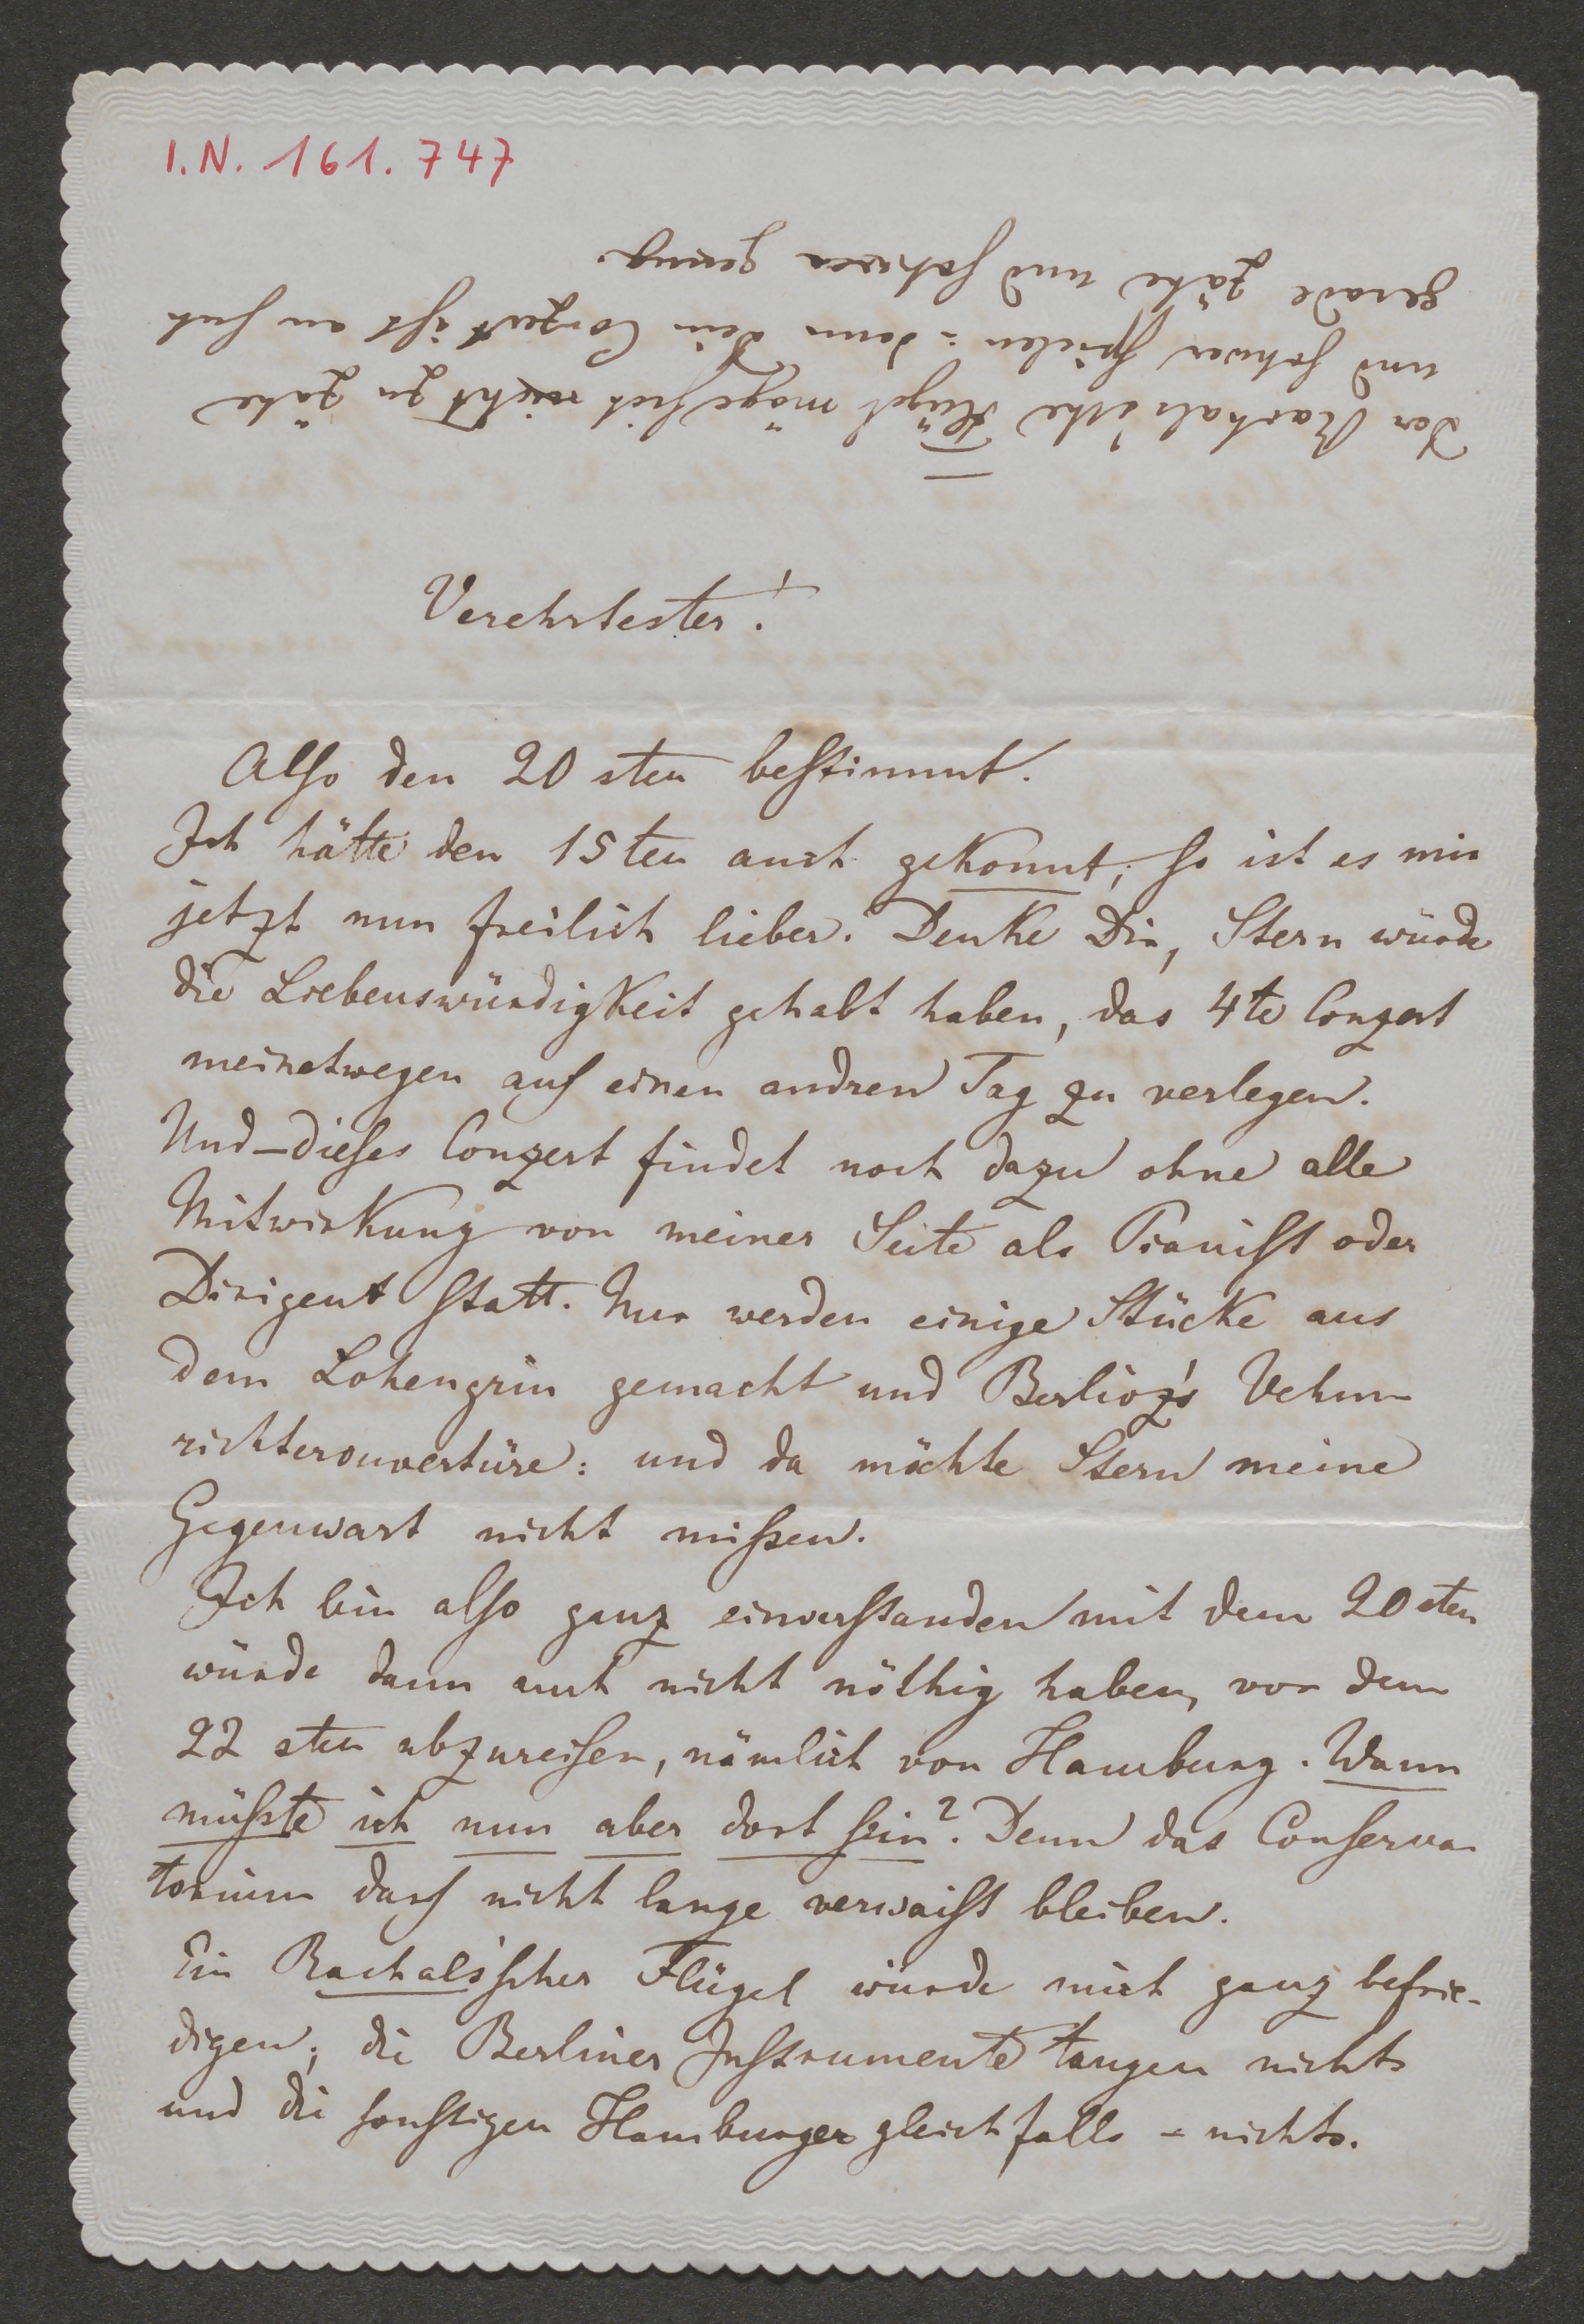 I.N. 161.747
Der Rachals'sche Flügel möge sich nicht zu zähe
und schwer spielen: denn dein Conzert ist an sich
gerade zähe und schwer genug.
Verehrtester!
Also den 20sten bestimmt.
Ich hätte den 15ten auch gekonnt, so ist es mir
jetzt nun freilich lieber. Denke Dir, Stern würde
die Liebenswürdigkeit gehabt haben, das 4te Conzert
meinetwegen auf einen andren Tag zu verlegen.
Und – dieses Conzert findet noch dazu ohne alle
Mitwirkung von meiner Seite als Pianist oder
Dirigent statt. Nur werden einige Stücke aus
dem Lohengrin gemacht und Berlioz's Vehm-
richterouvertüre: und da möchte Stern meine
Gegenwart nicht missen.
Ich bin also ganz einverstanden mit dem 20sten
würde dann auch nicht nöthig haben, vor dem
22sten abzureisen, nämlich von Hamburg. Wann
müsste ich nun aber dort sein? Denn das Conserva-
torium darf nicht lange verwaist bleiben.
Ein Rachals'scher Flügel würde mich ganz befrie-
digen; die Berliner Instrumente taugen nichts
und die sonstigen Hamburger gleichfalls – nichts.